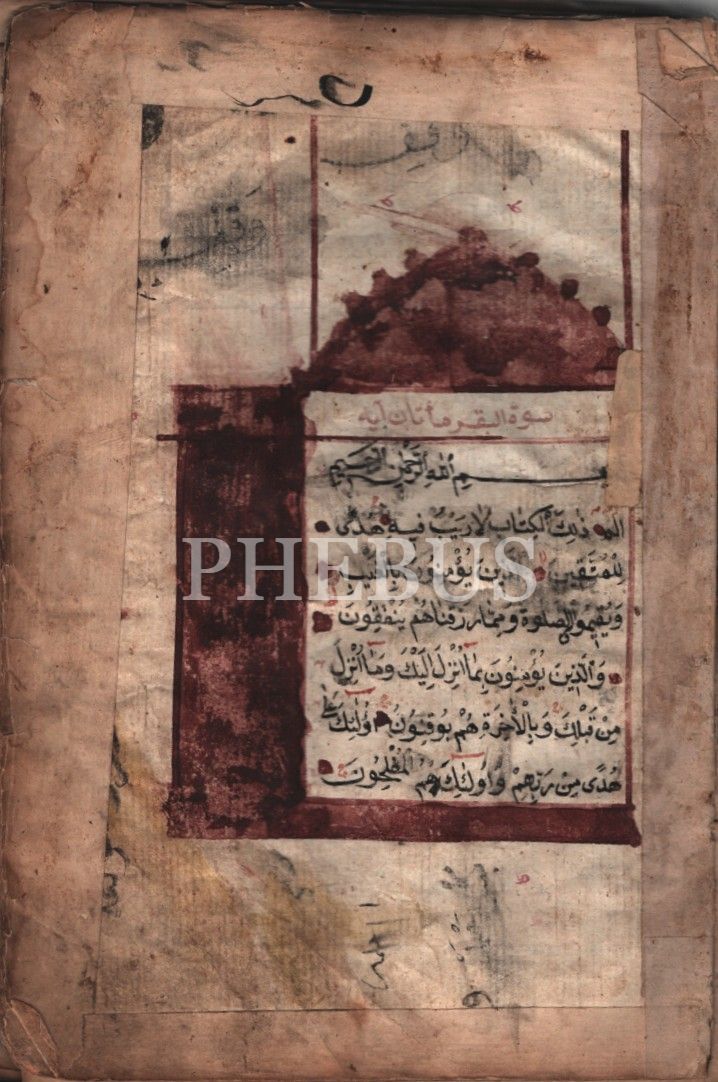 وقف
سوة البقر مأتان آيه
بسم الله الرحمن الرحيم
الم ذلك الكتاب لا ريب فيه هدى
PHEBUS
للمتقين الذين يؤمنون بالغيب
ويقيمو الصلوة ومما رزقناهم ينفقون
والذين يؤمنون بما انزل اليك وما انزل
من قبلك وبالاخرة هم يوقنون اولئك على
هدى من ربهم واولئك هم المفلحون